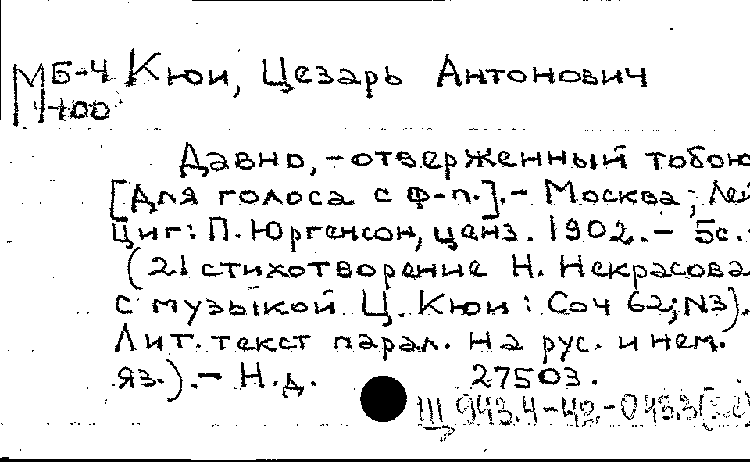 МБ-4 Кюи, Цезарь Антонович
400
Давно, - отверженный тобою
[Для голоса с ф-п.]. - Москва; Лей
циг: П. Юргенсон, ценз. 1902. - 5с.:
(21 стихотворение Н. Некрасова
с музыкой Ц. Кюи: Соч 62; N3).
Лит. текст парал. на рус. и нем.
яз.). - Н.д. 27503.
Ш 943.4-42-043.3